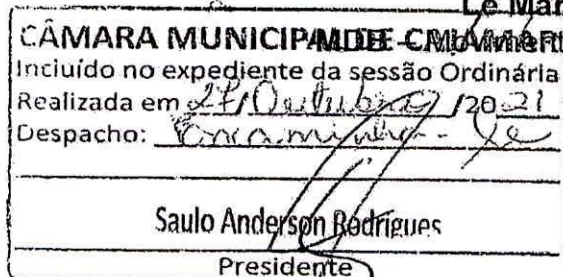 Le Mar
CÂMARA MUNICIPA
Incluído no expediente da sessão Ordinária
Realizada em 27/Outubro/2021
Despacho: Encaminha-se
Saulo Anderson Rodrigues
Presidente